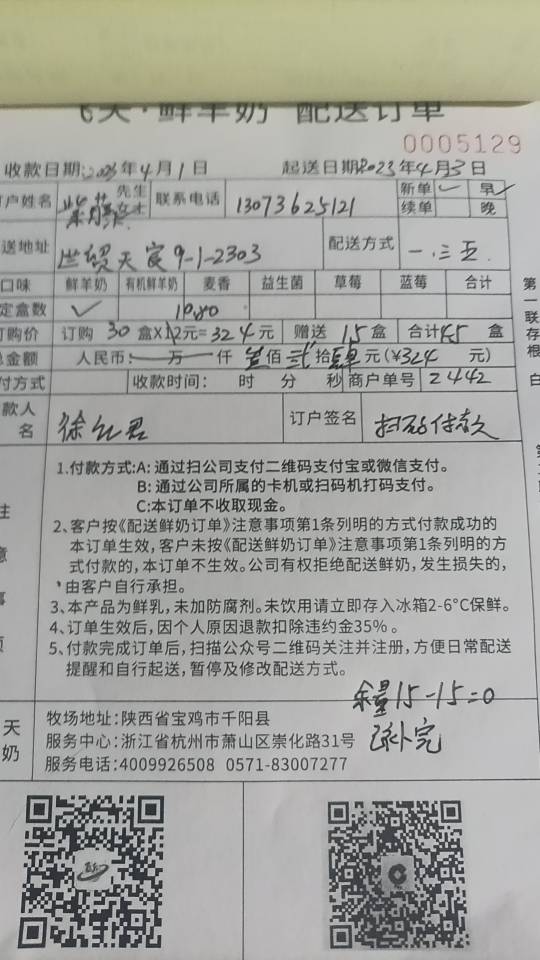 飞天·鲜羊奶 配送订单
0005129
收款日期:2023年4月1日 起送日期2023年4月3日
订户姓名 先生 女士 联系电话 13073625121 新单✓ 早✓
续单 晚
送地址 世贸天宸9-1-2303 配送方式 一.三五
口味 鲜羊奶 有机鲜羊奶 麦香 益生菌 草莓 蓝莓 合计
定盒数 ✓ 10.80
订购价 订购 30 盒X12元=324元 赠送 15盒 合计45盒
总金额 人民币: 万 仟 叁佰 贰 拾肆元(¥324 元)
付方式 收款时间: 时 分 秒 商户单号 2442
款人名 订户签名 扫码付款
第一联存根 白
1.付款方式:A: 通过扫公司支付二维码支付宝或微信支付。
B: 通过公司所属的卡机或扫码机打码支付。
C:本订单不收取现金。
2、客户按《配送鲜奶订单》注意事项第1条列明的方式付款成功的
本订单生效,客户未按《配送鲜奶订单》注意事项第1条列明的方
式付款的,本订单不生效。公司有权拒绝配送鲜奶,发生损失的,
由客户自行承担。
3、本产品为鲜乳,未加防腐剂。未饮用请立即存入冰箱2-6°C保鲜。
4、订单生效后,因个人原因退款扣除违约金35%。
5、付款完成订单后,扫描公众号二维码关注并注册,方便日常配送
提醒和自行起送,暂停及修改配送方式。
余量15-15=0
已补完
天
奶
牧场地址:陕西省宝鸡市千阳县
服务中心:浙江省杭州市萧山区崇化路31号
服务电话:4009926508 0571-83007277